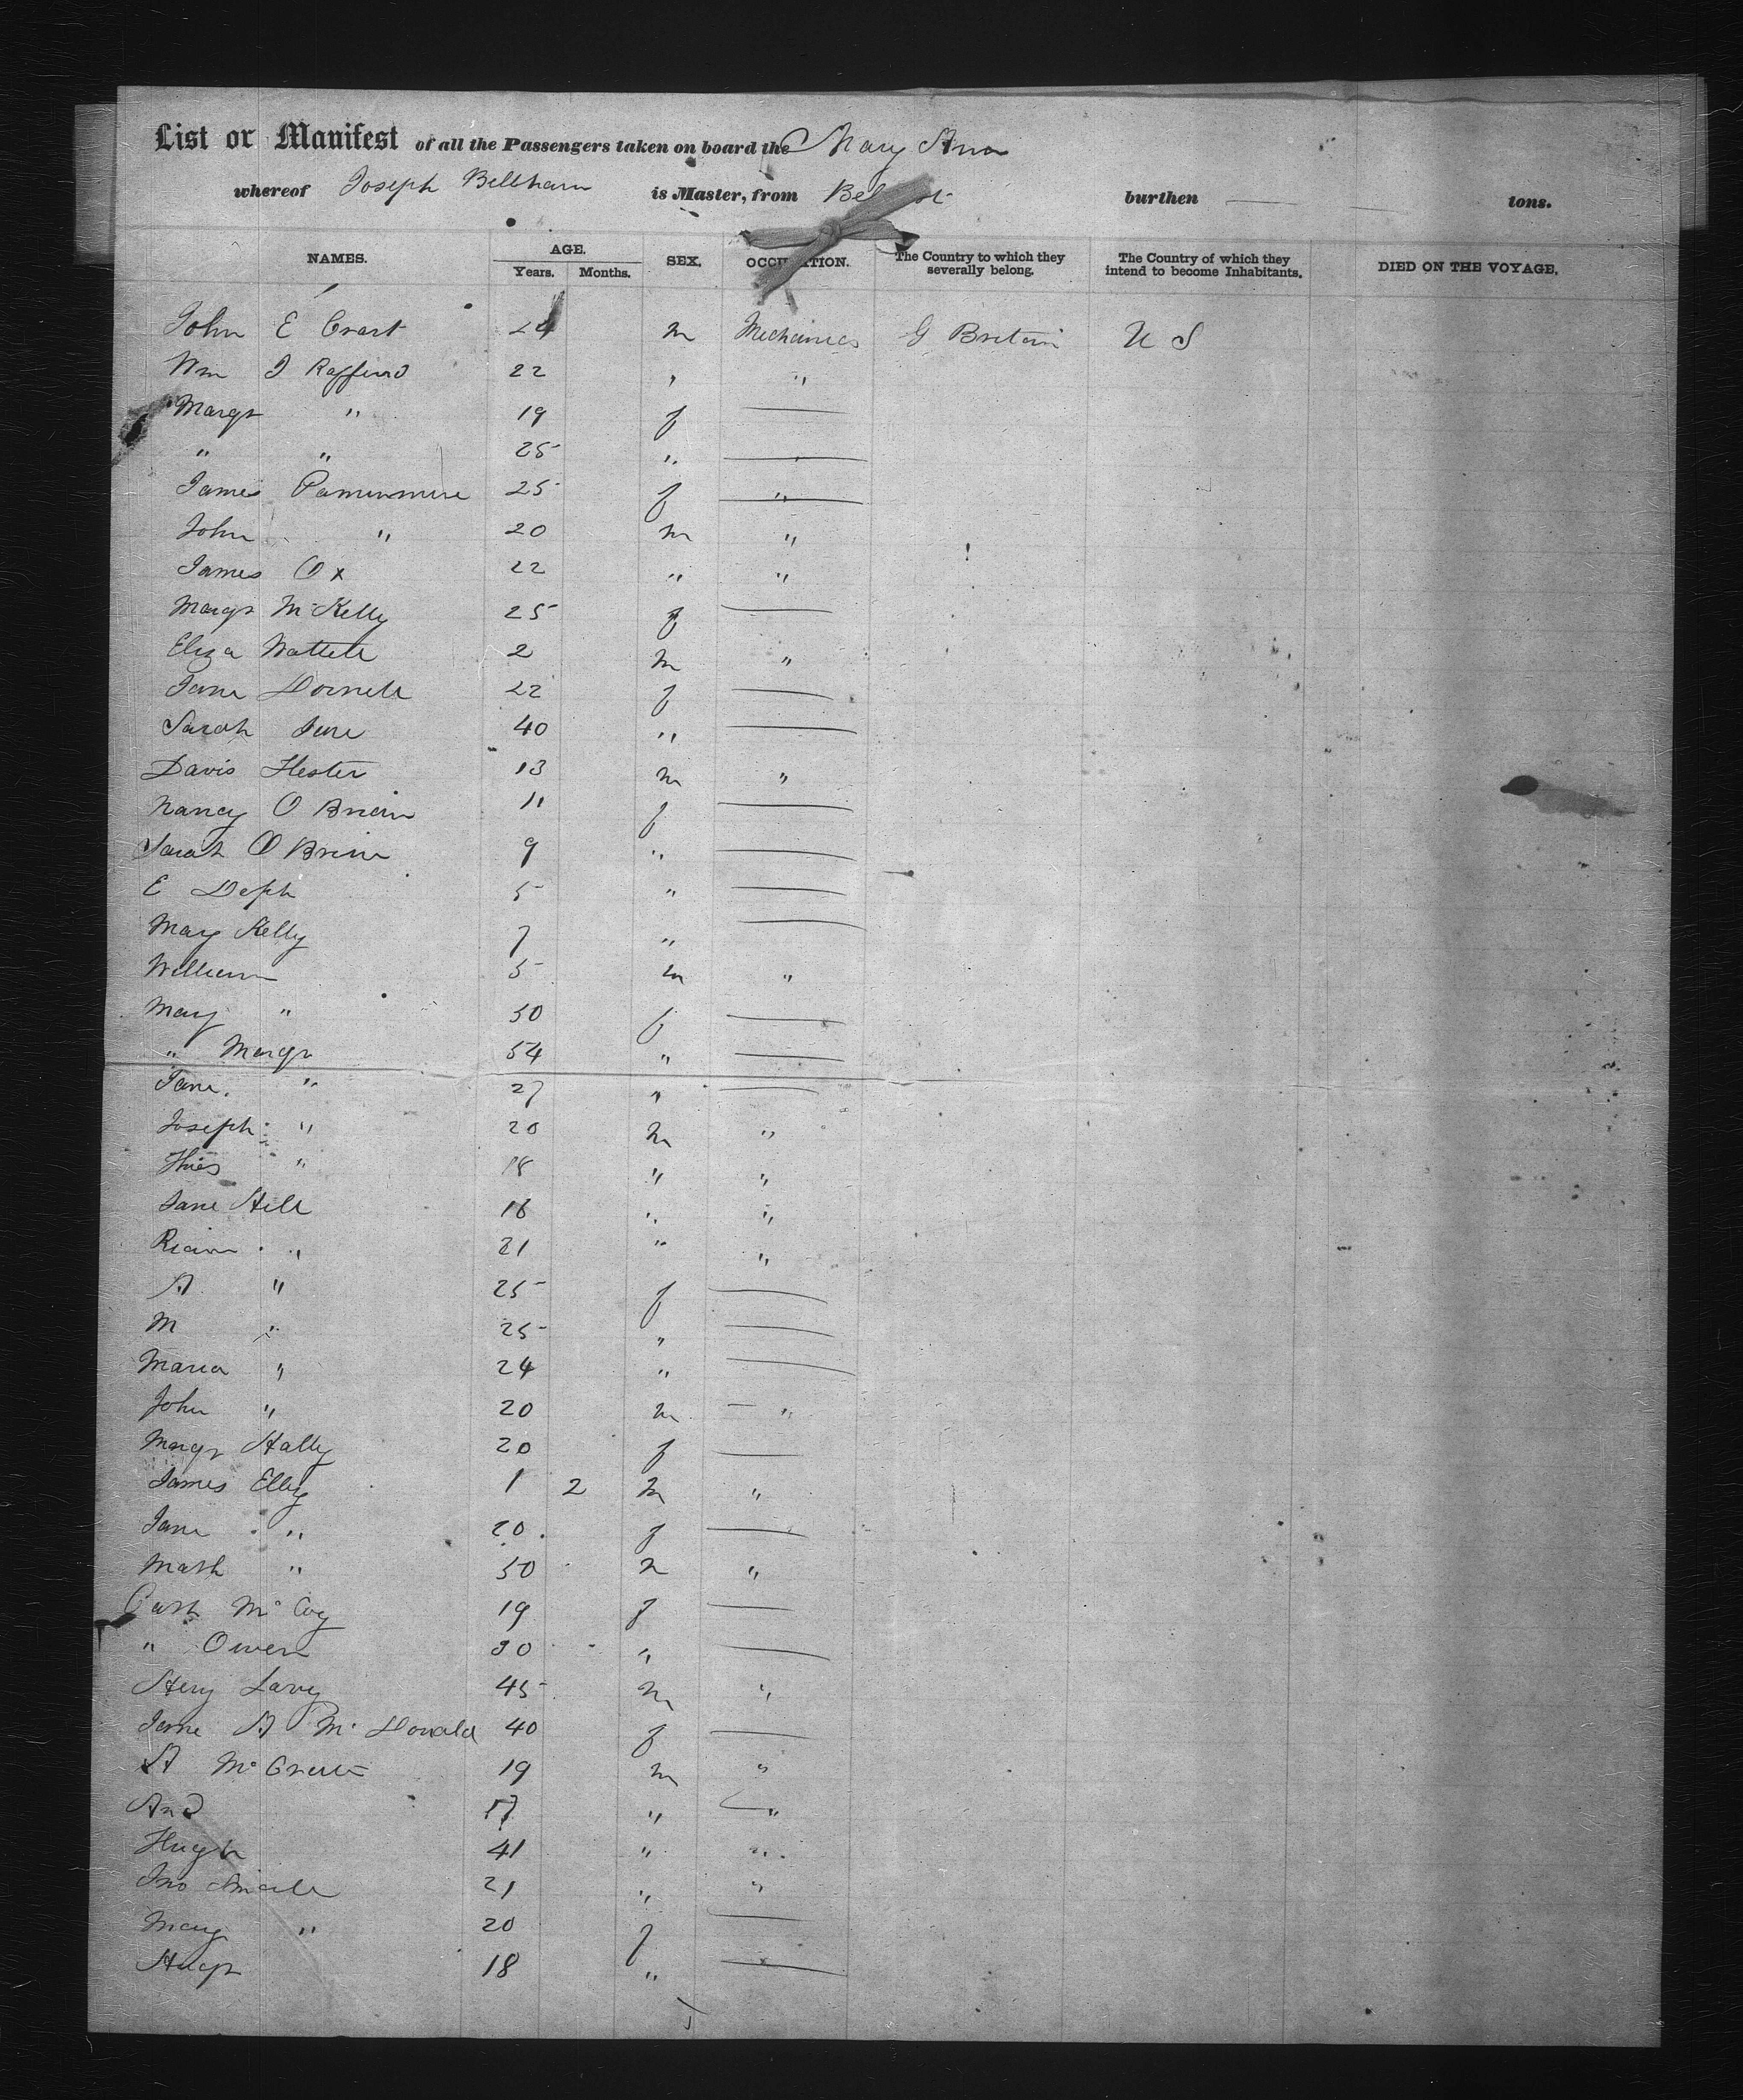 List or Manifest of all the Passengers taken on board the Mary Ann
whereof Joseph Bellham is Master, from burthen — — tons.
NAMES. AGE. Years. Months. SEX. OCCUPATION. The Country to which they severally belong. The Country of which they intend to become Inhabitants. DIED ON THE VOYAGE.
John E 24 m Mechanics G Britain U S
Wm J 22 " "
Margt " 19 f —
" " 25 " —
James 25 f "
John " 20 m "
James Ox 22 " "
Margt McKelly 25 f —
Eliza 2 m "
Jane 22 f —
Sarah 40 " —
Davis Hester 13 m "
Nancy O Brien 11 f —
Sarah O Brien 9 " —
E Deph 5 " —
Mary Kelly 7 " —
William 5 m "
Mary " 50 f —
" Margt 54 " —
Jane. " 27 " —
Joseph " 20 m "
" 18 " "
Jane Hill 18 " "
" 21 " "
A " 25 f —
M " 25 " —
Maria " 24 " —
John " 20 m — "
Margt Hally 20 f —
James Elley 1 2 m "
Jane " 20 f —
" 50 m "
McCoy 19 f —
" Owen 30 " —
Levy 45 m "
Jane A McDonald 40 f —
A 19 m "
And 17 " "
Hugh 41 " "
Jno 21 " "
Mary " 20 f —
18 " —